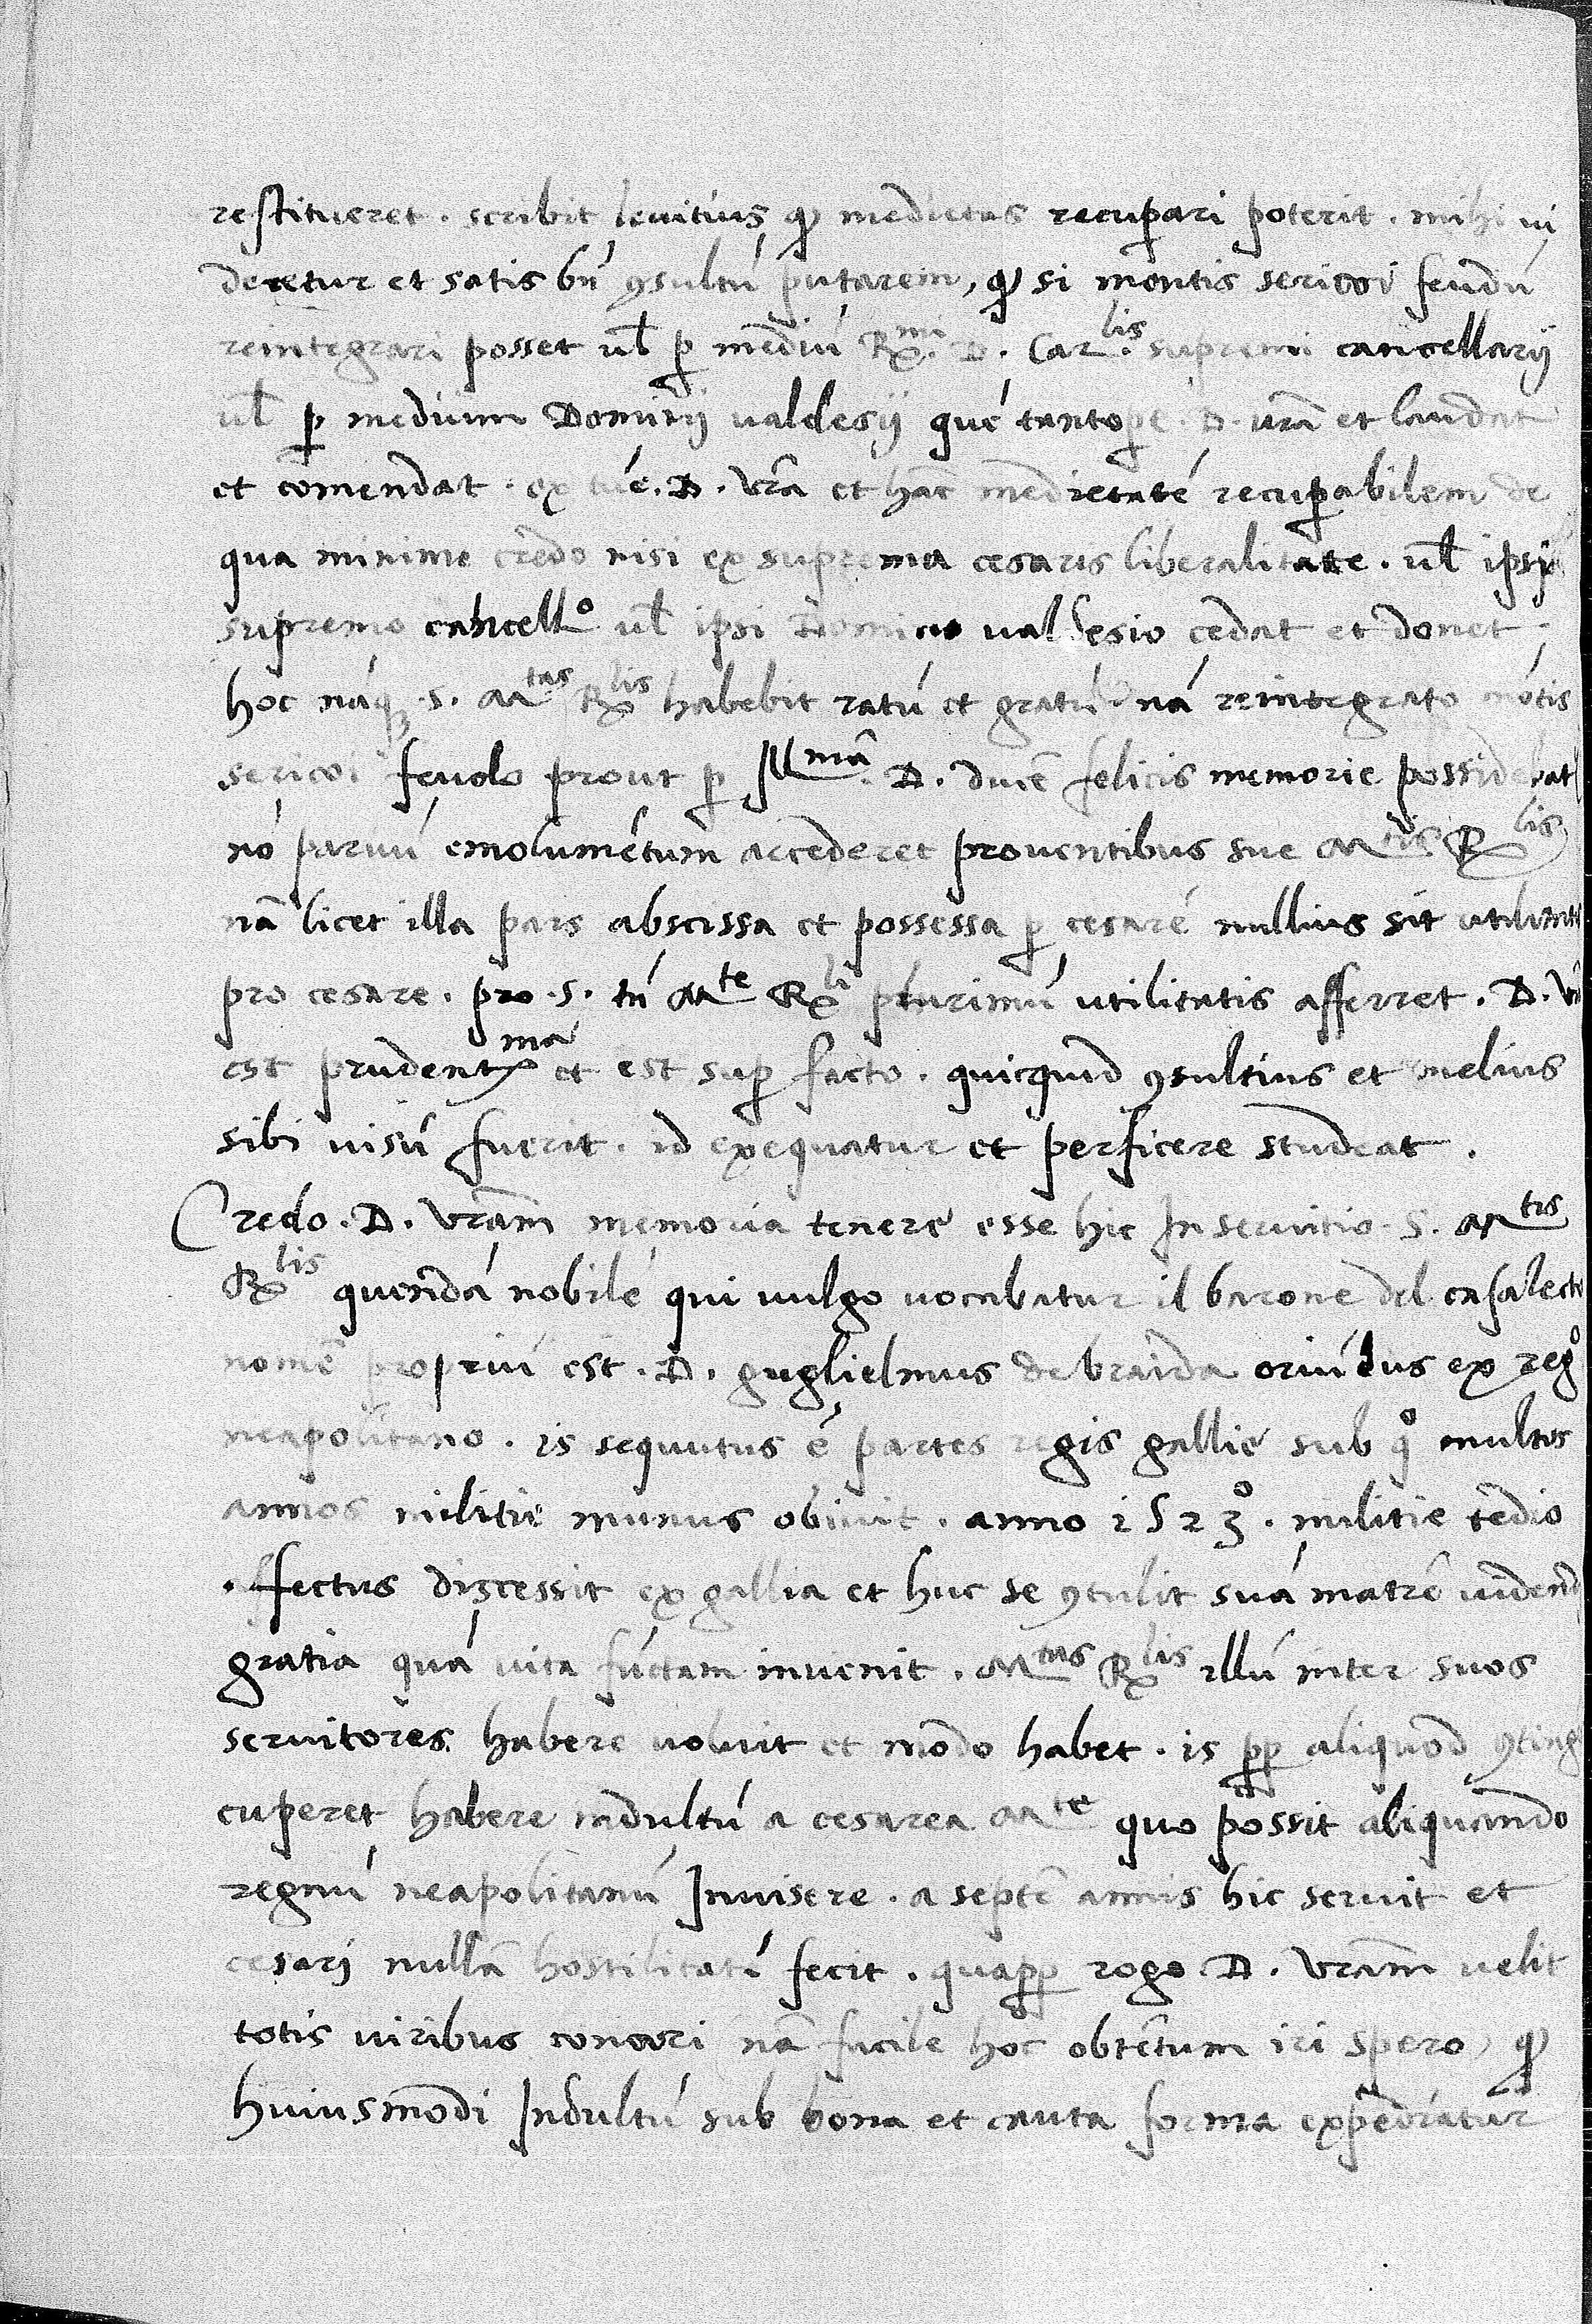 restitueret. scribit levitius ꝙ medietas recuꝑari poterit. mihi vi
deretur et satis bn̄ ꝯsultú putarem, ꝙ si montis sericoi feudú
reintegrari posset vl̄ ꝑ mediú Rx.mi D. Car.lis supremi cancellarij
vl̄ ꝑ medium Dominj valdesij qué tantoꝑe. D. vrā et laudat
et com̄endat. ex túc. D. vrā et hāc medietaté recuꝑabilem de
qua minime credo nisi ex suprema cesaris liberalitate. vl̄ ipsi
supremo cancell.o vl̄ ipsi Domino valdesio cedat et donet.
hoc náqȝ .S. Mtas Rxlis habebit ratú et gratú. ná reintegrato mótis
sericoi feudo prout ꝑ Jllmā. D. ducē felicis memorie possidebat
nó parvú emolumétum accederet proventibus sue Mtis Rxlis
nā licet illa pars abscissa et possessa ꝑ cesaré nullius sit
pro cesare. pro .S. tń Mte Rxli plurimú utilitatis afferret. D.
est prudentxmá et est suꝑ facto. quicquid ꝯsultius et melius
sibi visú fuerit. id exequatur et perficere studeat.
Credo. D. vrām memoria tenere esse hic In servitio .S. Mtis
Rxlis quendá nobilé qui vulgo vocabatur il barone del casalecto
nomē propriú est. D. guglielmus de braida oriúdus ex reg.o
neapolitano. is sequutus é partes regis gallie sub q̊ multos
annos militie munus obivit. anno 1523º. militie tedio
affectus discessit ex gallia et huc se ꝯtulit suá matré vidend
gratia quá vita fúctam invenit. Mtas Rxlis illú inter suos
servitores habere voluit et modo habet. is ꝓꝑ aliquod ꝯting
cuperet habere indultú a cesarea Mte quo possit aliquando
regnú neapolitanú Invisere. a septē annis hic servit et
cesarj nullā hostilitaté fecit. quaꝓꝑ rogo. D. vrām velit
totis viribus conari nā facile hoc obtētum iri spero, ꝙ
huiusmodi Indultú sub bona et cauta forma expediatur